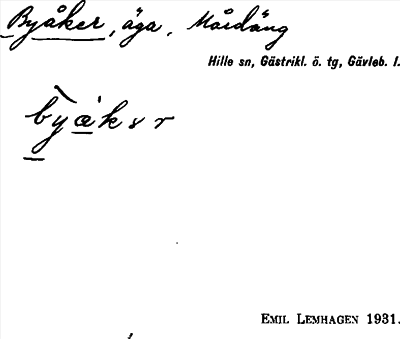 Byåker, äga, Mårdäng
Hille sn, Gästrikl. ö. tg, Gävleb. l.
byækər
EMIL LEMHAGEN 1931.